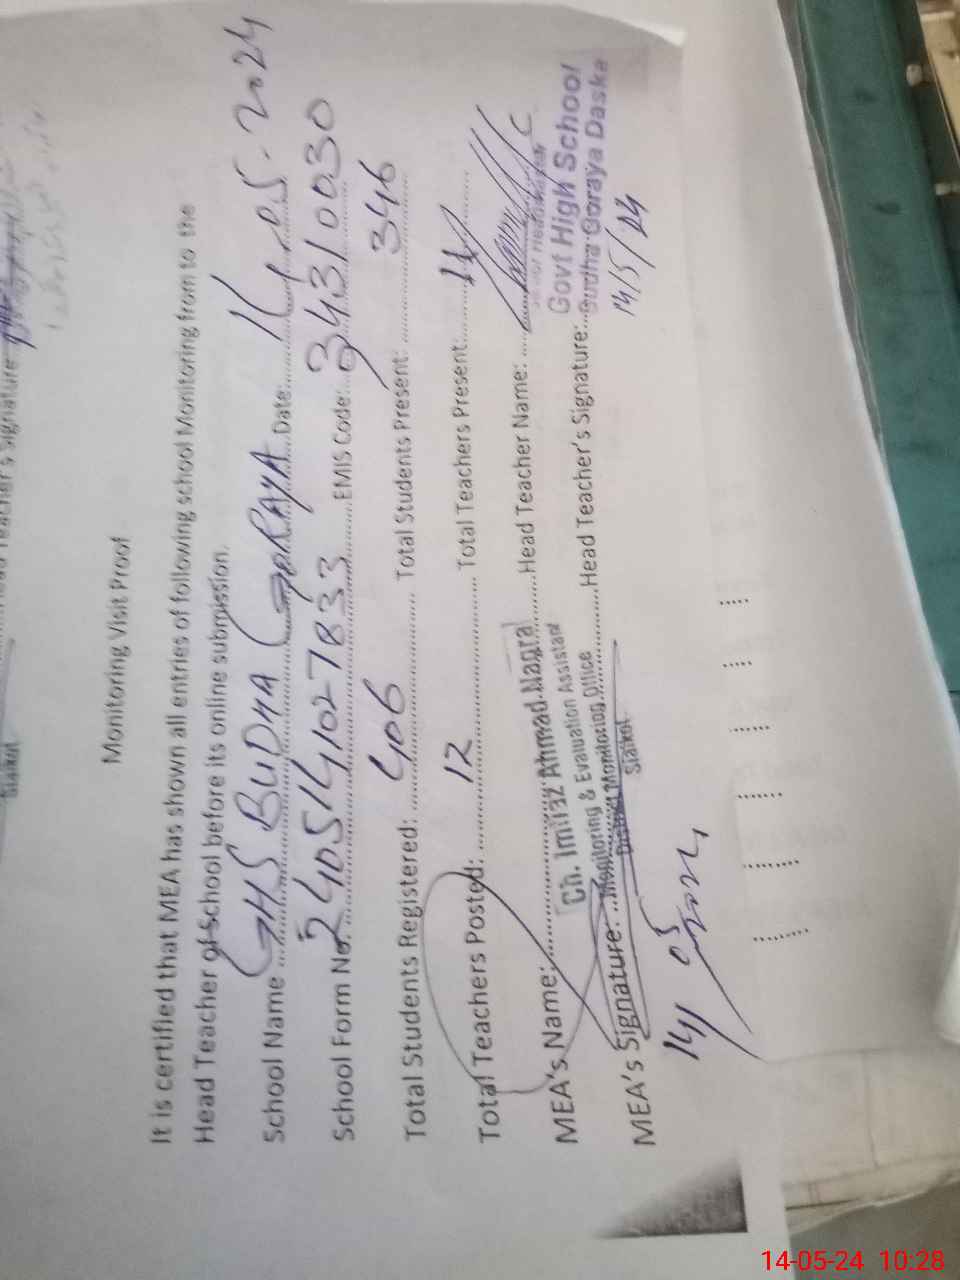 Teacher's Signature
Sialkot
Monitoring Visit Proof
It is certified that MEA has shown all entries of following school Monitoring from to the
Head Teacher of School before its online submission.
School Name GHS BUDHA GORAYA Date: 14.05.2024
School Form No. 2405141027833 EMIS Code: 34310030
Total Students Registered: 406 Total Students Present: 346
Total Teachers Posted: 12 Total Teachers Present: 11
MEA's Name: Ch. Imtiaz Ahmad Nagra Head Teacher Name:
Monitoring & Evaluation Assistant
MEA's Signature: District Monitoring Office Head Teacher's Signature:
Sialkot
Govt High School
Budha Goraya Daska
14/5/24
14/05/2024
14-05-24 10:28